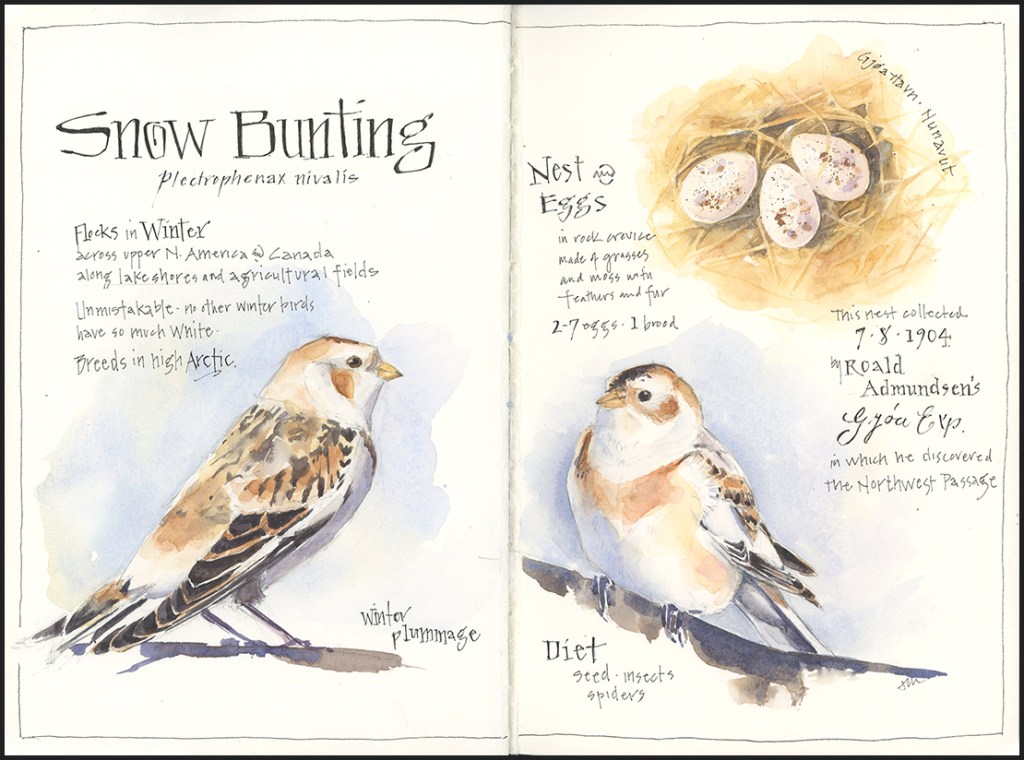 Snow Bunting
Plectrophenax nivalis
Flocks in Winter
across upper N. America & Canada
along lakeshores and agricultural fields
Unmistakable - no other winter birds
have so much white.
Breeds in high Arctic.
winter
plummage
Gjøa Havn · Nunavut
Nest &
Eggs
in rock crevice
made of grasses
and moss with
feathers and fur
2-7 eggs · 1 brood
This nest collected
7·8·1904
by Roald
Admundsen's
Gjóa Exp.
in which he discovered
the Northwest Passage
Diet
seed · insects
spiders